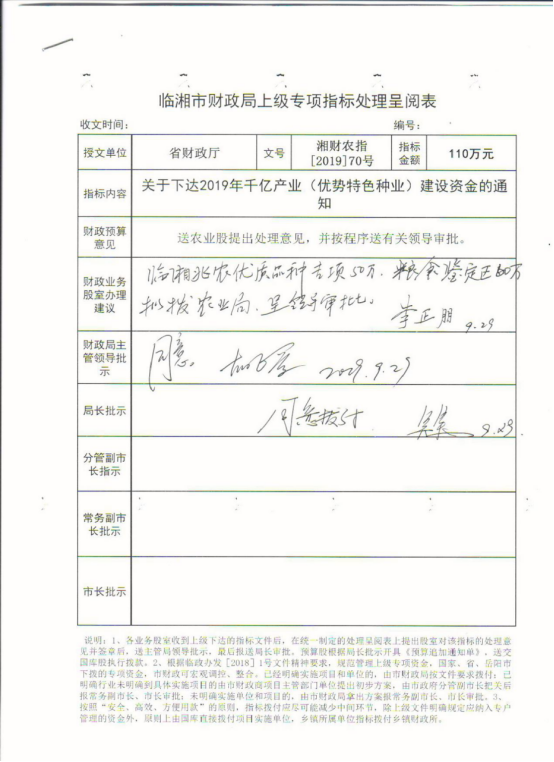 临湘市财政局上级专项指标处理呈阅表
收文时间: 编号:
授文单位 省财政厅 文号 湘财农指[2019]70号 指标金额 110万元
指标内容 关于下达2019年千亿产业（优势特色种业）建设资金的通知
财政预算意见 送农业股提出处理意见，并按程序送有关领导审批。
财政业务股室办理建议 临湘兆农优质品种专项50万、粮食鉴定60万
拟拨农业局、呈领导审批。 李正明 9.29
财政局主管领导批示 同意 2019.9.29
局长批示 同意拨付 9.29
分管副市长指示
常务副市长批示
市长批示
说明：1、各业务股室收到上级下达的指标文件后，在统一制定的处理呈阅表上提出股室对该指标的处理意
见并签章后，送主管局领导批示，最后报送局长审批。预算股根据局长批示开具《预算追加通知单》、送交
国库股执行拨款。2、根据临政办发［2018］1号文件精神要求，规范管理上级专项资金，国家、省、岳阳市
下拨的专项资金，市财政可宏观调控、整合。已经明确实施项目和单位的，由市财政局按文件要求拨付；已
明确行业未明确到具体实施项目的由市财政商项目主管部门单位提出初步方案，由市政府分管副市长把关后
报常务副市长、市长审批；未明确实施单位和项目的，由市财政局拿出方案报常务副市长、市长审批。3、
按照“安全、高效、方便用款”的原则，指标拨付应尽可能减少中间环节，除上级文件明确规定应纳入专户
管理的资金外，原则上由国库直接拨付项目实施单位，乡镇所属单位指标拨付乡镇财政所。